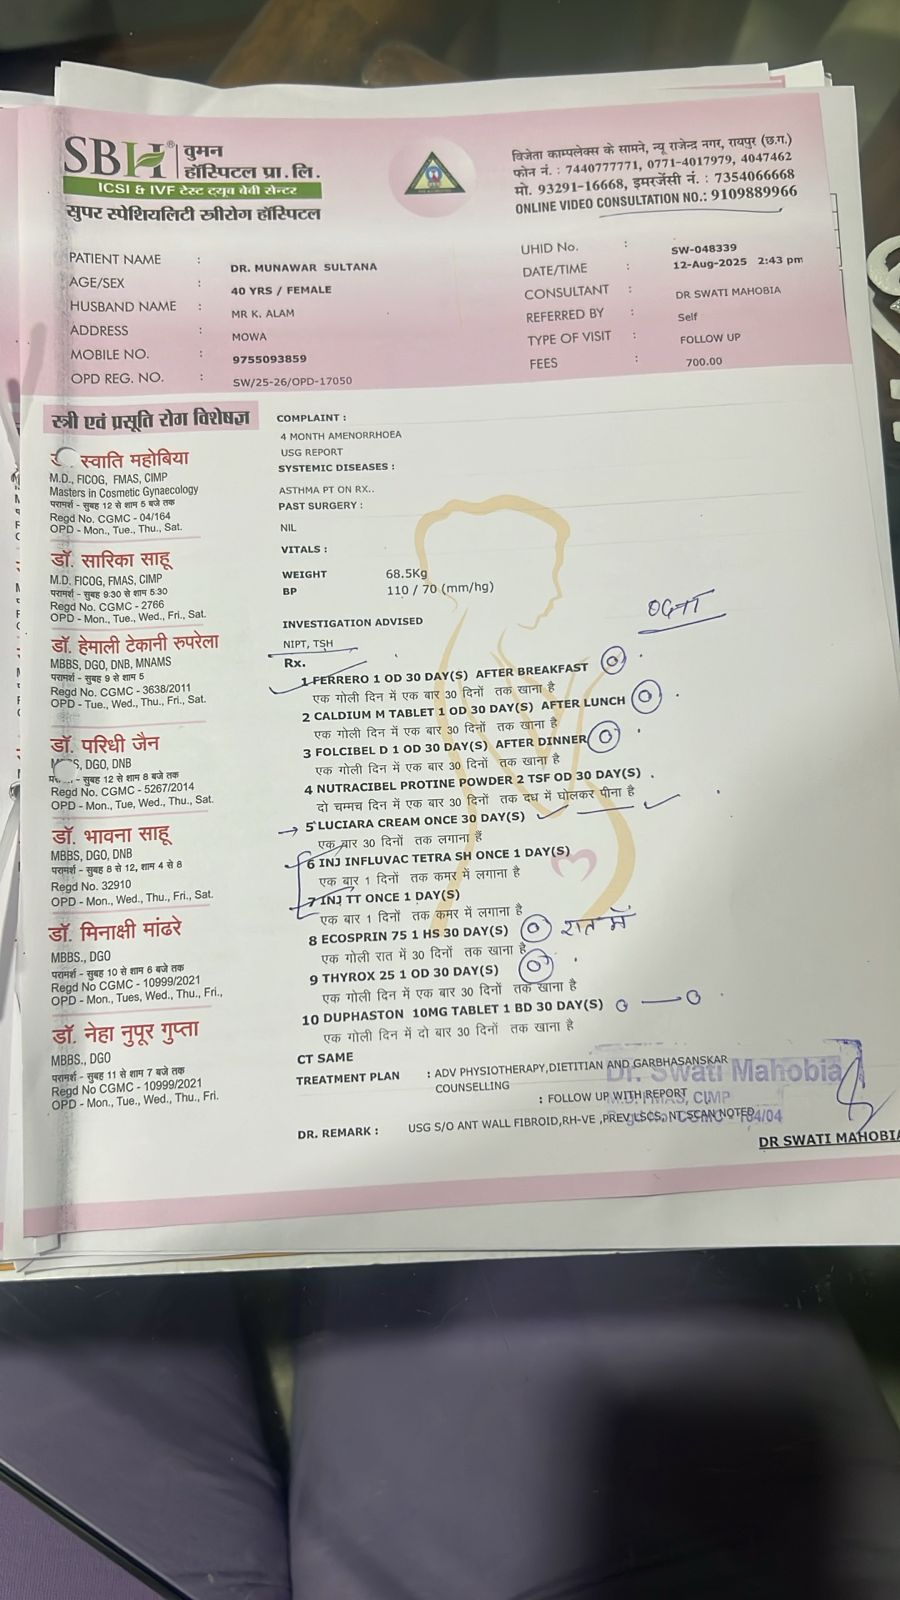 SBH® वुमन हॉस्पिटल प्रा.लि.
ICSI & IVF टेस्ट ट्यूब बेबी सेन्टर
सुपर स्पेशियलिटी स्त्रीरोग हॉस्पिटल
विजेता काम्पलेक्स के सामने, न्यू राजेन्द्र नगर, रायपुर (छ.ग.)
फोन नं. : 7440777771, 0771-4017979, 4047462
मो. 93291-16668, इमरजेंसी नं. : 7354066668
ONLINE VIDEO CONSULTATION NO.: 9109889966
PATIENT NAME : DR. MUNAWAR SULTANA
AGE/SEX : 40 YRS / FEMALE
HUSBAND NAME : MR K. ALAM
ADDRESS : MOWA
MOBILE NO. : 9755093859
OPD REG. NO. : SW/25-26/OPD-17050
UHID No. : SW-048339
DATE/TIME : 12-Aug-2025 2:43 pm
CONSULTANT : DR SWATI MAHOBIA
REFERRED BY : Self
TYPE OF VISIT : FOLLOW UP
FEES : 700.00
स्त्री एवं प्रसूति रोग विशेषज्ञ
स्वाति महोबिया
M.D., FICOG, FMAS, CIMP
Masters in Cosmetic Gynaecology
परामर्श - सुबह 12 से शाम 5 बजे तक
Regd No. CGMC - 04/164
OPD - Mon., Tue., Thu., Sat.
डॉ. सारिका साहू
M.D. FICOG, FMAS, CIMP
परामर्श - सुबह 9:30 से शाम 5:30
Regd No. CGMC - 2766
OPD - Mon., Tue., Wed., Fri., Sat.
डॉ. हेमाली टेकानी रुपरेला
MBBS, DGO, DNB, MNAMS
परामर्श - सुबह 9 से शाम 5
Regd No. CGMC - 3638/2011
OPD - Tue., Wed., Fri., Sat.
डॉ. परिधी जैन
S, DGO, DNB
सुबह 12 से शाम 8 बजे तक
Regd No. CGMC - 5267/2014
OPD - Mon., Tue, Wed., Thu., Sat.
डॉ. भावना साहू
MBBS, DGO, DNB
परामर्श - सुबह 8 से 12, शाम 4 से 8
Regd No. 32910
OPD - Mon., Wed., Thu., Fri., Sat.
डॉ. मिनाक्षी मांढरे
MBBS., DGO
परामर्श - सुबह 10 से शाम 6 बजे तक
Regd No CGMC - 10999/2021
OPD - Mon., Tues, Wed., Thu., Fri.,
डॉ. नेहा नुपूर गुप्ता
MBBS., DGO
परामर्श - सुबह 11 से शाम 7 बजे तक
Regd No CGMC - 10999/2021
OPD - Mon., Tue, Wed., Thu, Fri.
COMPLAINT :
4 MONTH AMENORRHOEA
USG REPORT
SYSTEMIC DISEASES :
ASTHMA PT ON RX..
PAST SURGERY :
NIL
VITALS :
WEIGHT 68.5Kg
BP 110 / 70 (mm/hg)
OGTT
INVESTIGATION ADVISED
NIPT, TSH
Rx.
1 FERRERO 1 OD 30 DAY(S) AFTER BREAKFAST
एक गोली दिन में एक बार 30 दिनों तक खाना है
2 CALDIUM M TABLET 1 OD 30 DAY(S) AFTER LUNCH
एक गोली दिन में एक बार 30 दिनों तक खाना है
3 FOLCIBEL D 1 OD 30 DAY(S) AFTER DINNER
एक गोली दिन में एक बार 30 दिनों तक खाना है
4 NUTRACIBEL PROTINE POWDER 2 TSF OD 30 DAY(S)
दो चम्मच दिन में एक बार 30 दिनों तक दूध में घोलकर पीना है
5 LUCIARA CREAM ONCE 30 DAY(S)
एक बार 30 दिनों तक लगाना है
6 INJ INFLUVAC TETRA SH ONCE 1 DAY(S)
एक बार 1 दिनों तक कमर में लगाना है
7 INJ TT ONCE 1 DAY(S)
एक बार 1 दिनों तक कमर में लगाना है
8 ECOSPRIN 75 1 HS 30 DAY(S) रात में
एक गोली रात में 30 दिनों तक खाना है
9 THYROX 25 1 OD 30 DAY(S)
एक गोली दिन में एक बार 30 दिनों तक खाना है
10 DUPHASTON 10MG TABLET 1 BD 30 DAY(S)
एक गोली दिन में दो बार 30 दिनों तक खाना है
CT SAME
TREATMENT PLAN : ADV PHYSIOTHERAPY,DIETITIAN AND GARBHASANSKAR COUNSELLING
: FOLLOW UP WITH REPORT
DR. REMARK : USG S/O ANT WALL FIBROID,RH-VE ,PREV LSCS, NT SCAN NOTED
Dr. Swati Mahobia
DR SWATI MAHOBIA